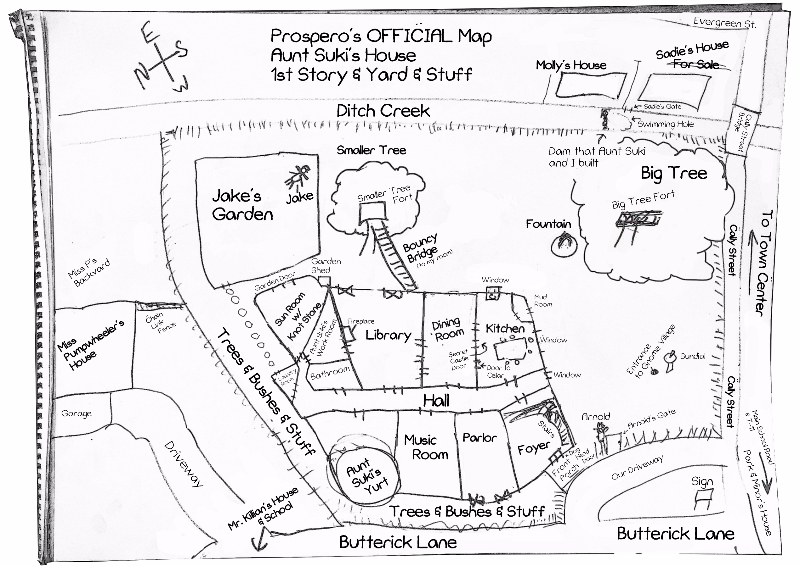 Prospero's OFFICIAL Map
Aunt Suki's House
1st Story & Yard & Stuff
E
S
N
W
Evergreen St.
Molly's House
Sadie's House
For Sale
Sadie's Gate
Swimming Hole
Ditch Creek
Dam that Aunt Suki
and I built
Big Tree
Big Tree Fort
Smaller Tree
Smaller Tree
Fort
Jake's
Garden
Jake
Bouncy
Bridge
Fountain
Cally Street
Bridge
Cally Street
To Town Center
Miss P's
Backyard
Garden
Shed
Garden Door
Window
Mud
Room
Miss
Pumpwheeler's
House
Chain
Link
Fence
Sun Room
w/
Knot Stone
Aunt Suki's
Work Room
Fireplace
Library
Dining
Room
Kitchen
Window
Secret
Castle
Door
Door to
Cellar
Window
Entrance
to Gnome Village
Sundial
Bathroom
Trees & Bushes & Stuff
Hall
Cally Street
Garage
Driveway
Music
Room
Parlor
Foyer
Stairs
Arnold
Arnold's Gate
Aunt
Suki's
Yurt
Our Driveway
Sign
Park & Minar's House
Mr. Killian's House
& School
Trees & Bushes & Stuff
Butterick Lane
Butterick Lane